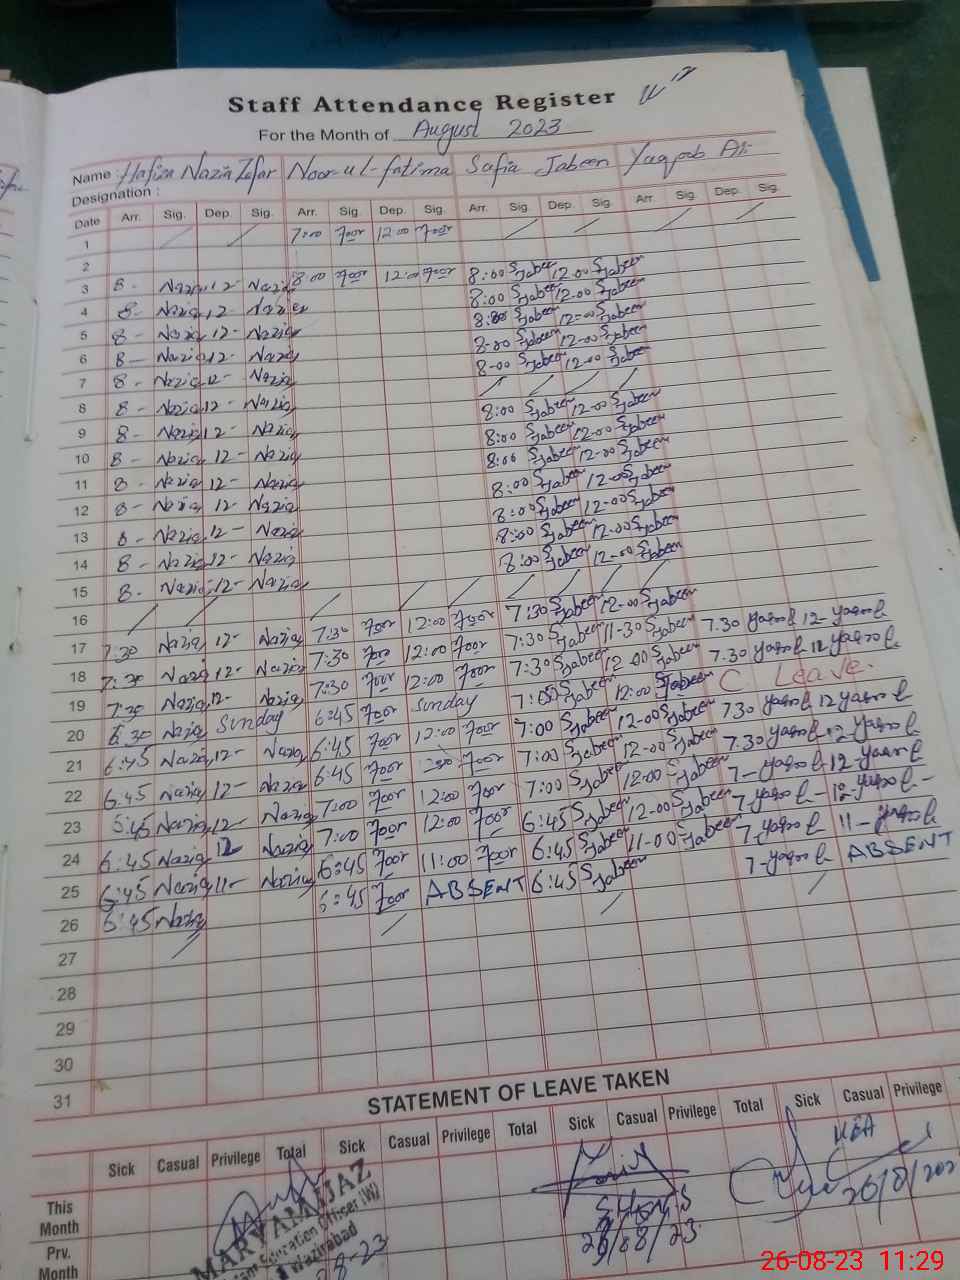 Staff Attendance Register
For the Month of August 2023
Name : Hafiza Nazia Zafar Noor-ul-fatima Safia Jabeen Yaqoob Ali
Designation :
Date Arr. Sig. Dep. Sig. Arr. Sig. Dep. Sig. Arr. Sig. Dep. Sig. Arr. Sig. Dep. Sig.
1 7:00 12:00
2
3 8- Nazia 12- Nazia 8:00 12:00 8:00 SJabeen 12-00 SJabeen
4 8- Nazia 12- Nazia 8:00 SJabeen 12-00 SJabeen
5 8- Nazia 12- Nazia 8:00 SJabeen 12-00 SJabeen
6 8- Nazia 12- Nazia 8-00 SJabeen 12-00 SJabeen
7 8- Nazia 12- Nazia 8-00 SJabeen 12-00 SJabeen
8 8- Nazia 12- Nazia
9 8- Nazia 12- Nazia 8:00 SJabeen 12-00 SJabeen
10 8- Nazia 12- Nazia 8:00 SJabeen 12-00 SJabeen
11 8- Nazia 12- Nazia 8:00 SJabeen 12-00 SJabeen
12 8- Nazia 12- Nazia 8:00 SJabeen 12-00 SJabeen
13 8- Nazia 12- Nazia 8:00 SJabeen 12-00 SJabeen
14 8- Nazia 12- Nazia 8:00 SJabeen 12-00 SJabeen
15 8- Nazia 12- Nazia 8:00 SJabeen 12-00 SJabeen
16
17 7:30 Nazia 12- Nazia 7:30 12:00 7:30 SJabeen 12-00 SJabeen 7.30 Yaqoob 12- Yaqoob
18 7:30 Nazia 12- Nazia 7:30 12:00 7:30 SJabeen 11-30 SJabeen 7.30 Yaqoob 12 Yaqoob
19 7:30 Nazia 12- Nazia 7:30 12:00 7:30 SJabeen 12 00 SJabeen C. Leave.
20 6:30 Nazia Sunday 6:45 Sunday 7:00 SJabeen 12:00 SJabeen 7.30 Yaqoob 12 Yaqoob
21 6:45 Nazia 12- Nazia 6:45 12:00 7:00 SJabeen 12-00 SJabeen 7.30 Yaqoob 12- Yaqoob
22 6:45 Nazia 12- Nazia 6:45 7:00 SJabeen 12-00 SJabeen 7- Yaqoob 12- Yaqoob
23 6:45 Nazia 12- Nazia 7:00 12:00 7:00 SJabeen 12:00 SJabeen 7- Yaqoob - 12- Yaqoob -
24 6:45 Nazia 12 Nazia 7:00 12:00 6:45 SJabeen 12-00 SJabeen 7- Yaqoob 11- Yaqoob
25 6:45 Nazia 11- Nazia 6:45 11:00 6:45 SJabeen 11-00 SJabeen 7- Yaqoob ABSENT
26 6:45 Nazia 6:45 ABSENT 6:45 SJabeen
27
28
29
30
31
STATEMENT OF LEAVE TAKEN
Sick Casual Privilege Total Sick Casual Privilege Total Sick Casual Privilege Total Sick Casual Privilege
This Month
Prv. Month
MARYAM IJAZ
Education Officer (W)
Wazirabad
8-23
26/08/23
26/8/202
26-08-23 11:29